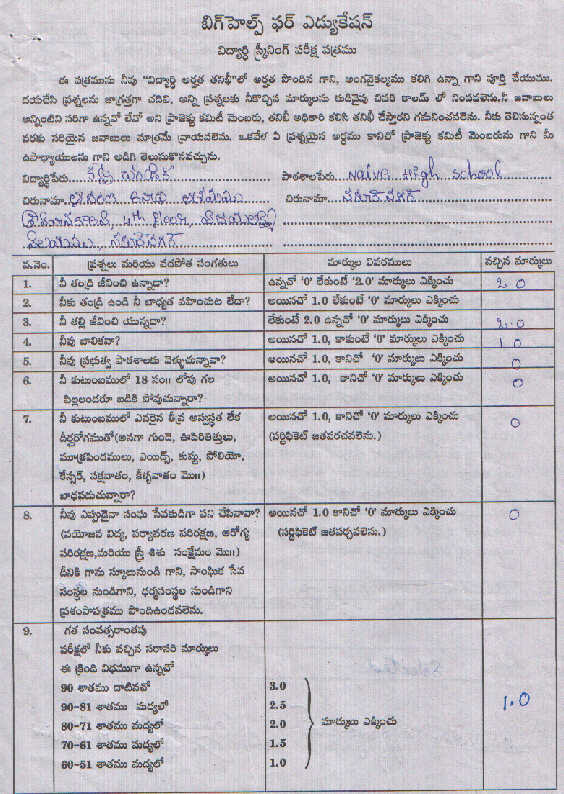 బిగ్‌హెల్ప్ ఫర్ ఎడ్యుకేషన్
విద్యార్థి స్క్రీనింగ్ పరీక్ష పత్రము
ఈ పత్రమును నీవు "విద్యార్థి అర్హత తనిఖీ"లో అర్హత పొందిన గాని, అంగవైకల్యము కలిగి ఉన్నా గాని పూర్తి చేయుము.
దయచేసి ప్రశ్నలను జాగ్రత్తగా చదివి, అన్ని ప్రశ్నలకు నీకొచ్చిన మార్కులను కుడివైపు చివరి కాలమ్ లో నింపవలెను.నీ జవాబులు
అన్నింటిని సరిగా ఉన్నవో లేవో అని ప్రాజెక్టు కమిటీ మెంబరు, తనిఖీ అధికారి కలిసి తనిఖీ చేస్తారని గమనించవలెను. నీకు తెలిసినంత
వరకు సరియైన జవాబులు మాత్రమే వ్రాయవలెను. ఒకవేళ ఏ ప్రశ్నయైన అర్థము కానిచో ప్రాజెక్టు కమిటీ మెంబరును గాని మీ
ఉపాధ్యాయులను గాని అడిగి తెలుసుకొనవచ్చును.
విద్యార్థిపేరు పాఠశాలపేరు High School
చిరునామా చిరునామా
4th floor,
వ.నెం. ప్రశ్నలు మరియు వడపోత సంగతులు మార్కుల వివరములు వచ్చిన మార్కులు
1. నీ తండ్రి జీవించి ఉన్నాడా? ఉన్నచో '0' లేకుంటే '2.0' మార్కులు ఎక్కించు 2.0
2. నీకు తండ్రి ఉండి నీ బాధ్యత వహించుట లేదా? అయినచో 1.0 లేకుంటే '0' మార్కులు ఎక్కించు
3. నీ తల్లి జీవించి యున్నదా? లేకుంటే 2.0 ఉన్నచో '0' మార్కులు ఎక్కించు 2.0
4. నీవు బాలికవా? అయినచో 1.0, కాకుంటే '0' మార్కులు ఎక్కించు 1.0
5. నీవు ప్రభుత్వ పాఠశాలకు వెళ్ళుచున్నావా? అయినచో 1.0, కానిచో '0' మార్కులు ఎక్కించు 0
6. నీ కుటుంబములో 18 సం॥ లోపు గల అయినచో 1.0, కానిచో '0' మార్కులు ఎక్కించు 0
పిల్లలందరూ బడికి పోవుచున్నారా?
7. నీ కుటుంబములో ఎవరైన తీవ్ర అస్వస్థత లేక అయినచో 1.0, కానిచో '0' మార్కులు ఎక్కించు 0
దీర్ఘరోగముతో(అనగా గుండె, ఊపిరితిత్తులు, (సర్టిఫికెట్ జతపరచవలెను.)
మూత్రపిండములు, ఎయిడ్స్, కుష్ఠు, పోలియో,
కేన్సర్, పక్షవాతం, కీళ్ళవాతం మొ॥)
బాధపడుచున్నారా?
8. నీవు ఎప్పుడైనా సంఘ సేవకుడిగా పని చేసినావా? అయినచో 1.0 కానిచో '0' మార్కులు ఎక్కించు 0
(వయోజన విద్య, పర్యావరణ పరిరక్షణ, ఆరోగ్య (సర్టిఫికెట్ జతపర్చవలెను.)
పరిరక్షణ,మరియు స్త్రీ శిశు సంక్షేమం మొ॥)
దీనికి గాను స్కూలునుండి గాని, సాంఘిక సేవ
సంస్థల నుండిగాని, ధర్మసంస్థల నుండిగాని
ప్రశంసాపత్రము పొందిఉండవలెను.
9. గత సంవత్సరాంతపు
పరీక్షలో నీకు వచ్చిన సరాసరి మార్కులు
ఈ క్రింది విధముగా ఉన్నచో
90 శాతము దాటినచో 3.0
90-81 శాతము మధ్యలో 2.5 1.0
80-71 శాతము మధ్యలో 2.0 మార్కులు ఎక్కించు
70-61 శాతము మధ్యలో 1.5
60-51 శాతము మధ్యలో 1.0